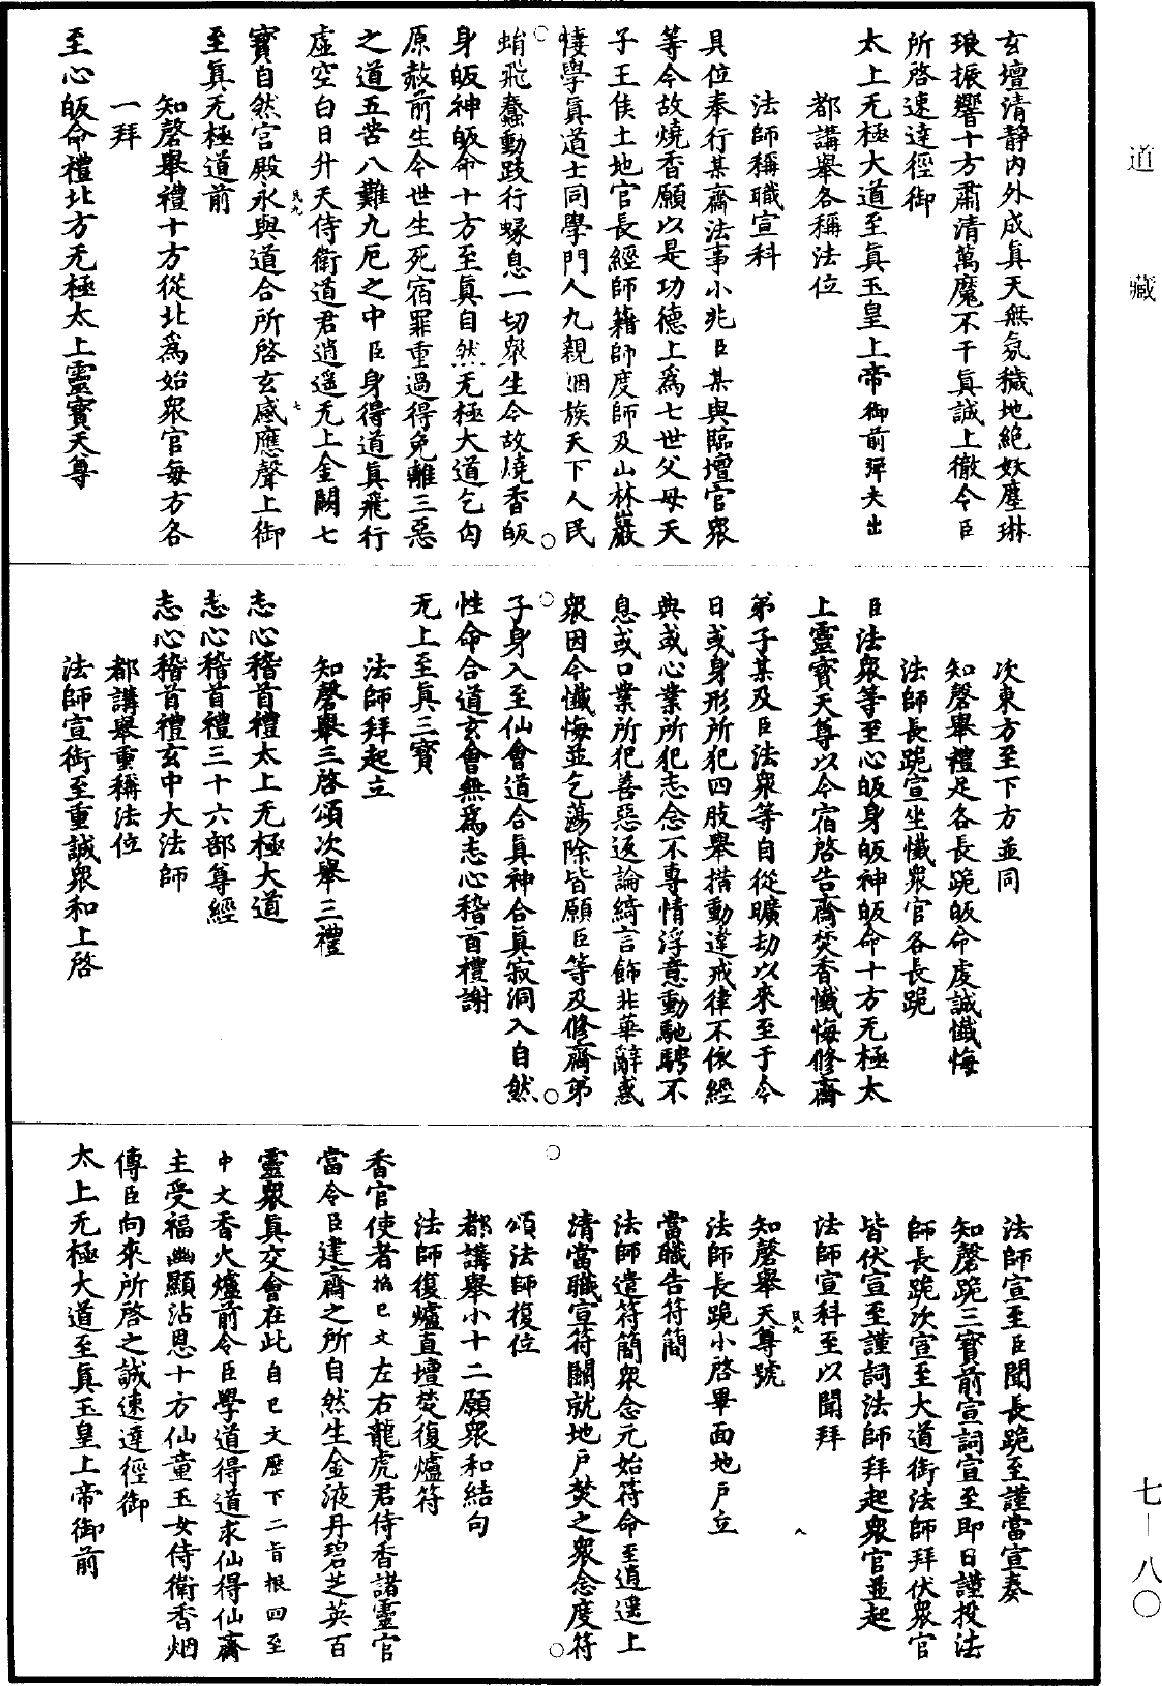 玄壇清靜內外成眞天無氛穢地絕妖塵琳
琅振響十方肅清萬魔不干眞誠上徹令臣
所啓速達徑御
太上无極大道至眞玉皇上帝御前彈夫出
都講舉各稱法位
法師稱職宣科
具位奉行某齋法事小兆臣某與臨壇官衆
等今故燒香願以是功德上爲七世父母天
子王侯土地官長經師籍師度師及山林巖
棲學眞道士同學門人九親姻族天下人民
蛸飛蠢動跂行蠉息一切衆生今故燒香皈
身皈神皈命十方至眞自然无極大道乞匄
原赦前生今世生死宿罪重過得免離三惡
之道五苦八難九厄之中臣身得道眞飛行
虛空白日升天侍衛道君逍遥无上金闕七
寶自然宮殿永與道合所啓玄感應聲上御
至眞无極道前
知磬舉禮十方從北爲始衆官每方各
一拜
至心皈命禮北方无極太上靈寶天尊
次東方至下方並同
知磬舉禮足各長跪皈命虔誠懺悔
法師長跪宣坐懺衆官各長跪
臣法衆等至心皈身皈神皈命十方无極太
上靈寶天尊以今宿啓告齋焚香懺悔修齋
弟子某及臣法衆等自從曠劫以來至于今
日或身形所犯四肢舉措動違戒律不依經
典或心業所犯志念不專情浮意動馳騁不
息或口業所犯善惡返論綺言飾非華辭惑
衆因今懺悔並乞蕩除皆願臣等及修齋弟
子身入至仙會道合眞神合眞寂洞入自然
性命合道玄會無爲志心稽首禮謝
无上至眞三寶
法師拜起立
知磬舉三啓頌次舉三禮
志心稽首禮太上无極大道
志心稽首禮三十六部尊經
志心稽首禮玄中大法師
都講舉重稱法位
法師宣銜至重誠衆和上啓
法師宣至臣聞長跪至謹當宣奏
知磬跪三寶前宣詞宣至即日謹投法
師長跪次宣至大道銜法師拜伏衆官
皆伏宣至謹詞法師拜起衆官並起
法師宣科至以聞拜
知磬舉天尊號
法師長跪小啓畢面地戶立
當職告符簡
法師遣符簡衆念元始符命至逍遥上
清當職宣符關就地戶焚之衆念度符
頌法師復位
都講舉小十二願衆和結句
法師復爐直壇焚復爐符
香官使者掐巳文左右龍虎君侍香諸靈官
當令臣建齋之所自然生金液丹碧芝英百
靈衆眞交會在此自巳文歷下二㫖根四至
中文香火爐前令臣學道得道求仙得仙齋
主受福幽顯沾恩十方仙童玉女侍衛香烟
傳臣向來所啓之誠速達徑御
太上无極大道至眞玉皇上帝御前
道藏
七—八〇